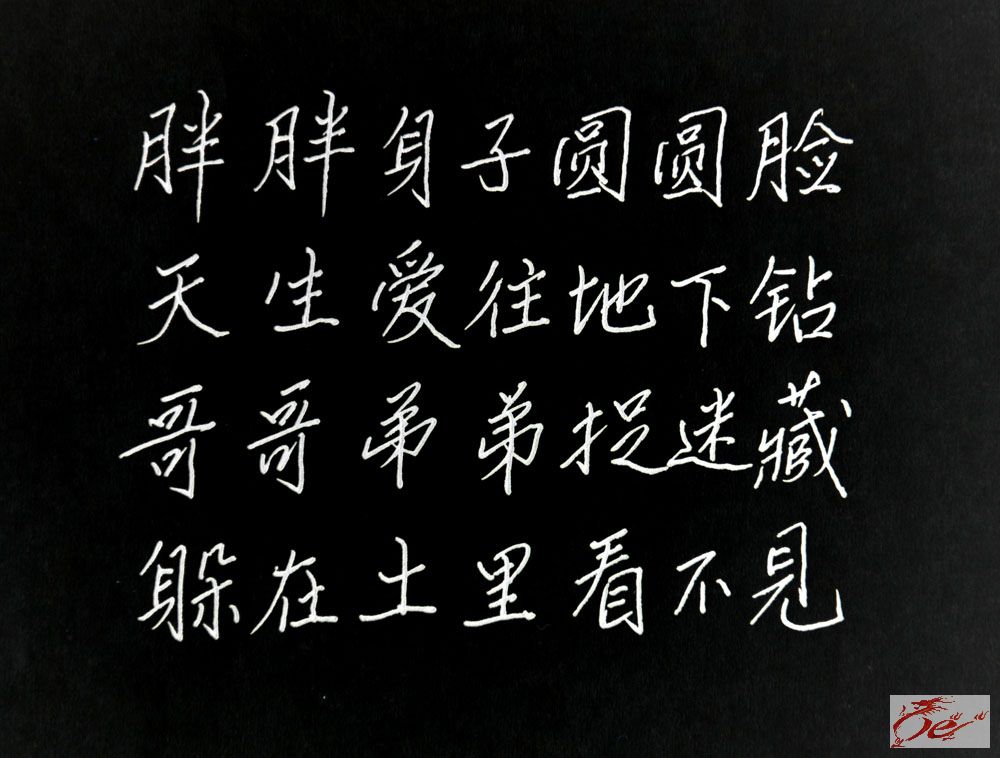 胖胖身子圆圆脸
天生爱往地下钻
哥哥弟弟捉迷藏
躲在土里看不见